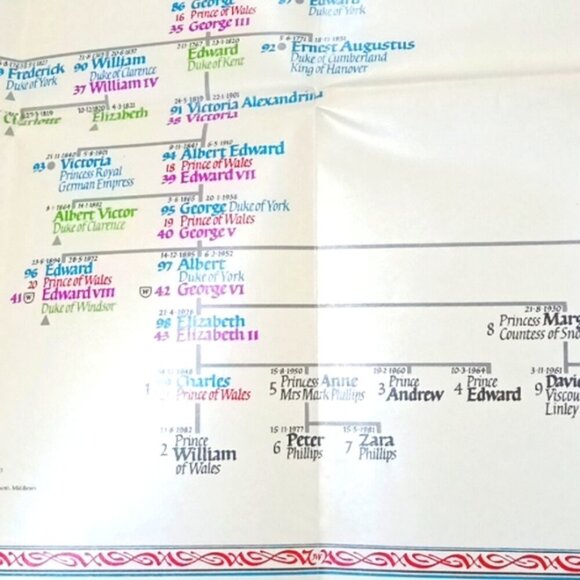 86 George
16 Prince of Wales
35 George III
87 Edward
Duke of York
Frederick
Duke of York
90 William
Duke of Clarence
37 William IV
Edward
Duke of Kent
92 Ernest Augustus
Duke of Cumberland
King of Hanover
Charlotte
Elizabeth
24-5-1819 22-1-1901
91 Victoria Alexandrina
38 Victoria
93 Victoria
Princess Royal
German Empress
9-11-1841 6-5-1910
94 Albert Edward
18 Prince of Wales
39 Edward VII
8-1-1864 14-1-1892
Albert Victor
Duke of Clarence
3-6-1865 20-1-1936
95 George Duke of York
19 Prince of Wales
40 George V
23-6-1894 28-5-1972
96 Edward
20 Prince of Wales
41 W Edward VIII
Duke of Windsor
14-12-1895 6-2-1952
97 Albert
Duke of York
W 42 George VI
21-4-1926
98 Elizabeth
43 Elizabeth II
21-8-1930
8 Princess Marg
Countess of Sno
Charles
Prince of Wales
15-8-1950
5 Princess Anne
Mrs Mark Phillips
19-2-1960
3 Prince
Andrew
10-3-1964
4 Prince
Edward
3-11-1961
9 David
Viscou
Linley
21-6-1982
2 Prince
William
of Wales
15-11-1977
6 Peter
Phillips
15-5-1981
7 Zara
Phillips
JW